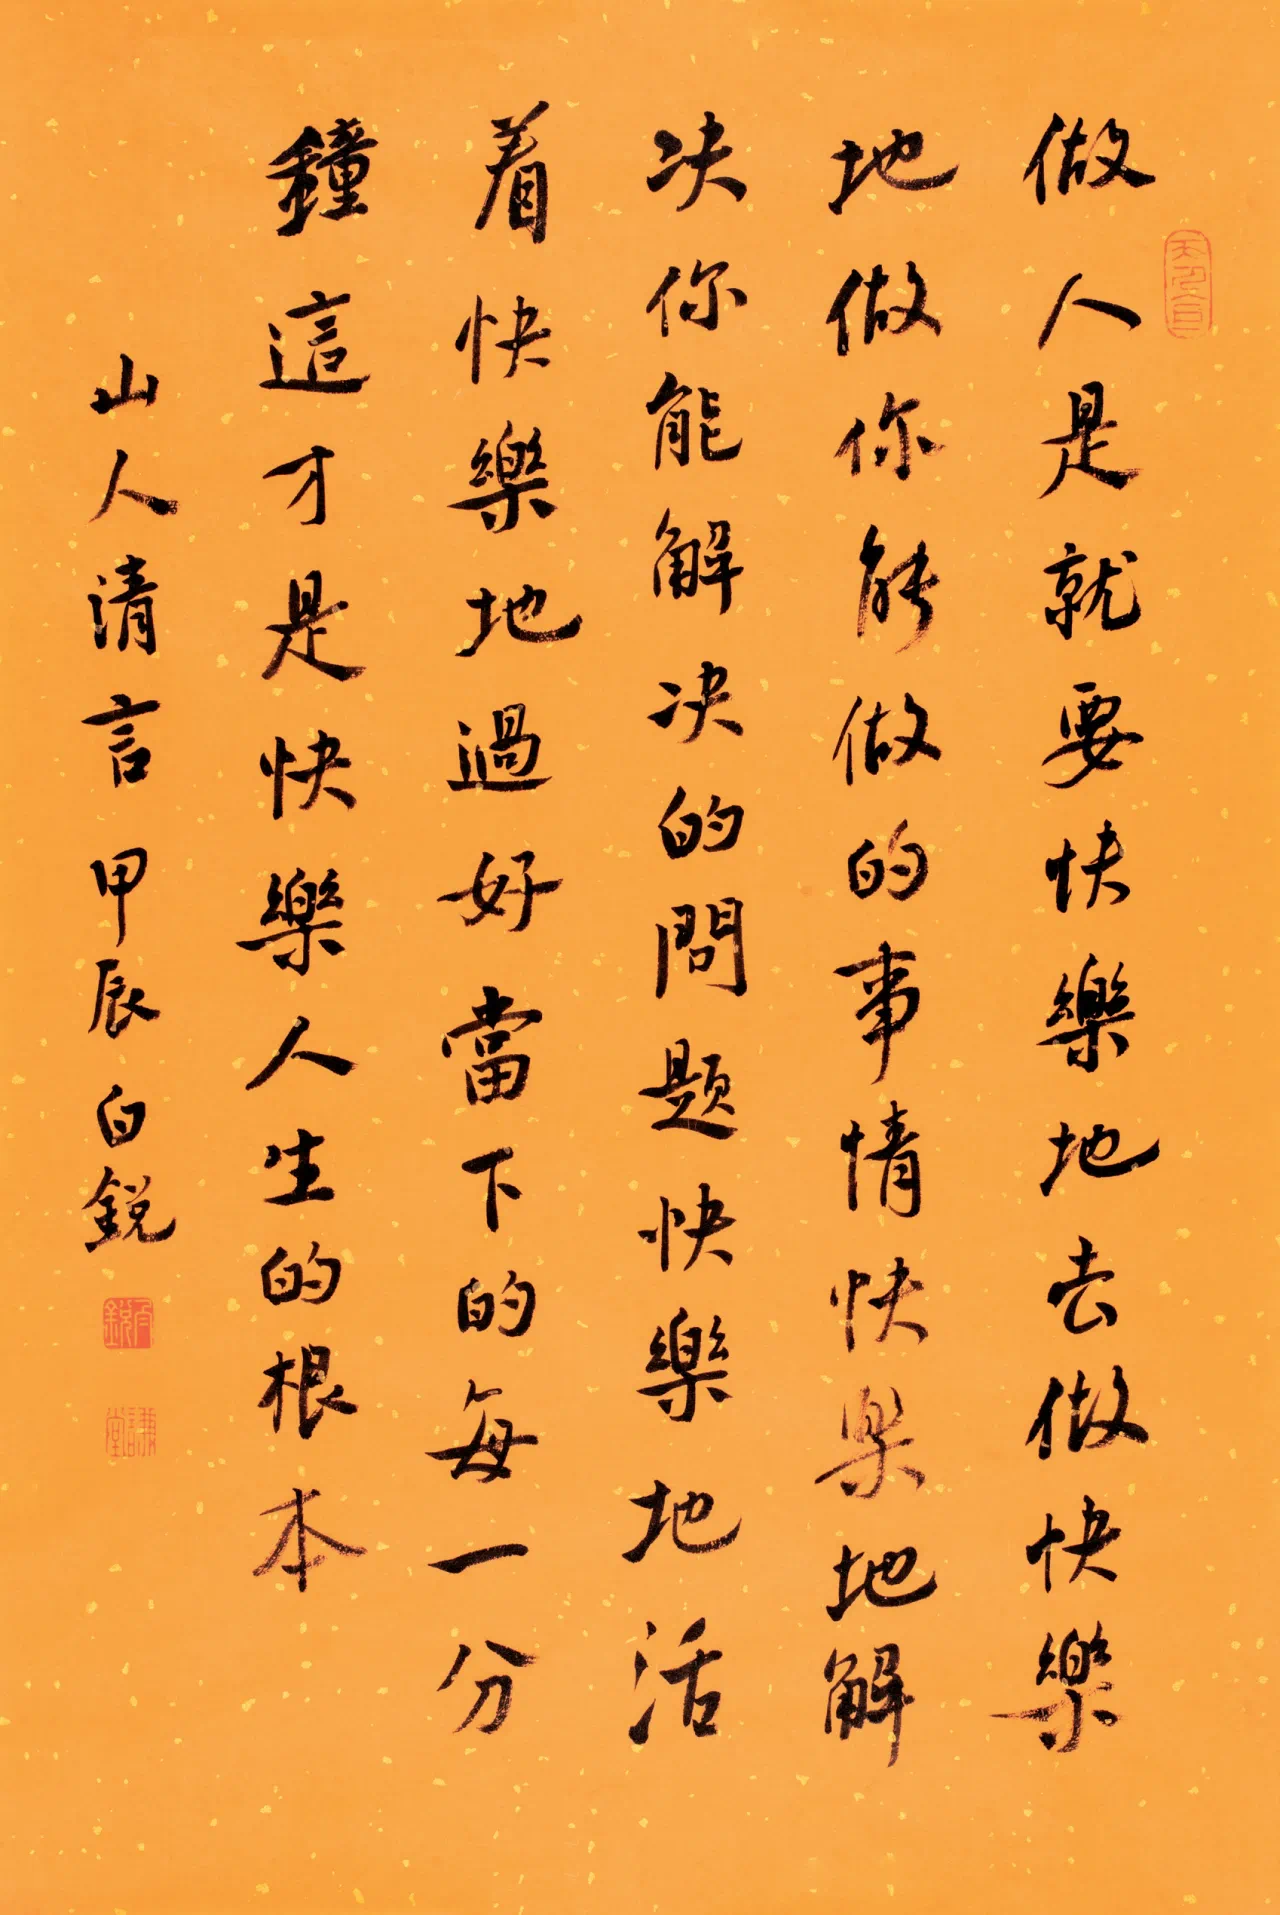 做人是就要快樂地去做快樂
地做你能做的事情快樂地解
决你能解决的問题快樂地活
着快樂地過好當下的每一分
鐘這才是快樂人生的根本
山人清言甲辰白銳